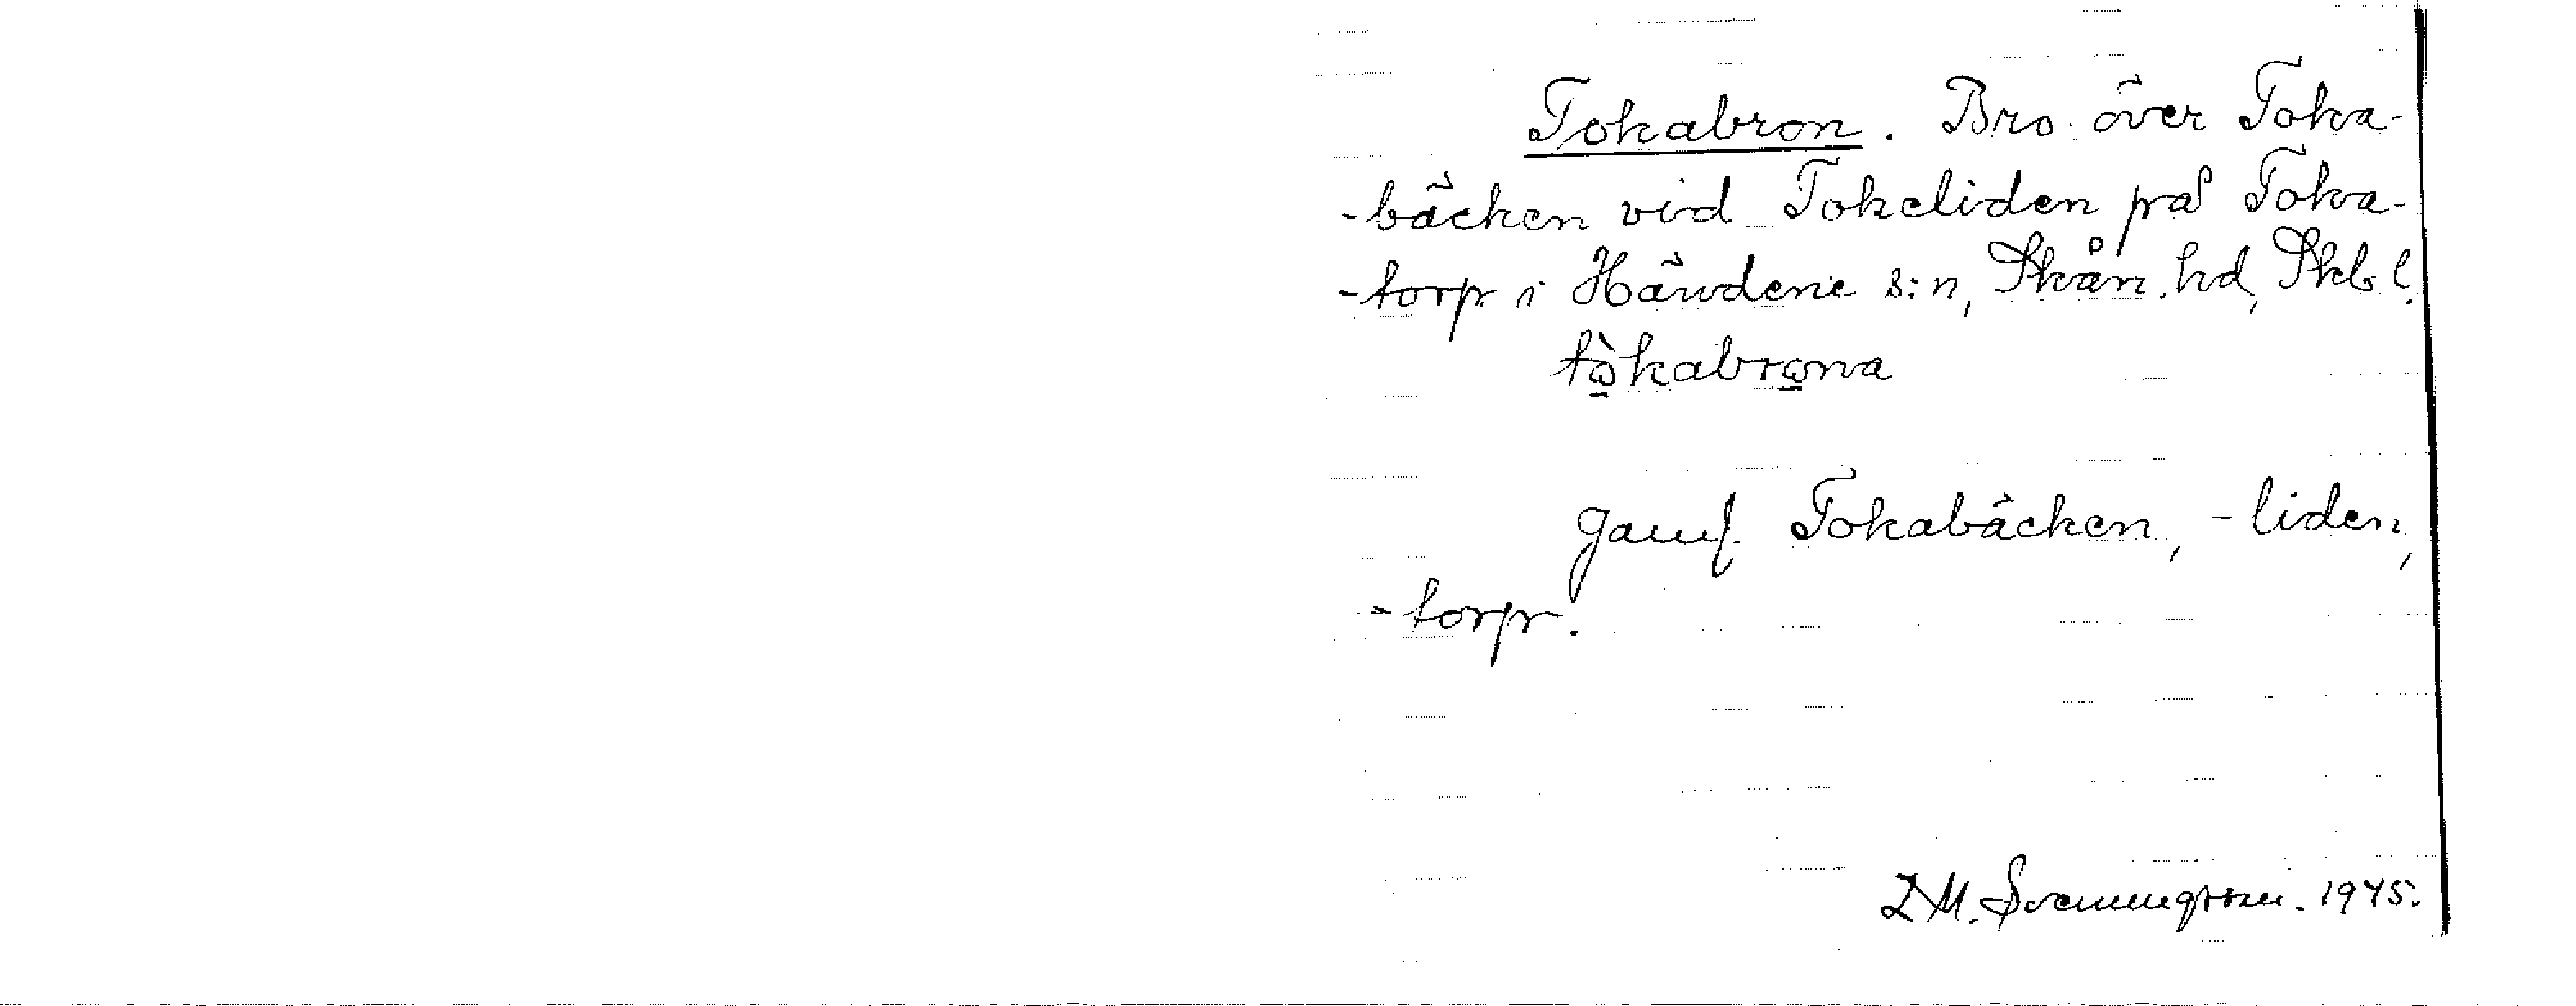 Tokabron. Bro över Toka-
-bäcken vid Tokeliden på Toka-
-torp i Härvdene s:n, Skån. hd, Skb l.
tòkabrona
Jämf. Tokabäcken, -liden,
-torp.
D M. Svenningsson. 1945.